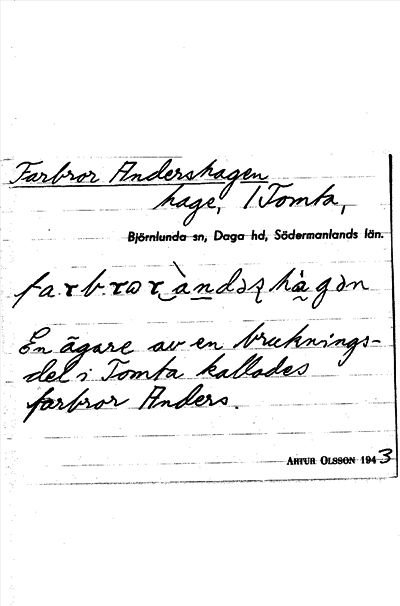 Farbror Andershagen
hage, 1 Tomta,
Björnlunda sn, Daga hd, Södermanlands län.
En ägare av en bruknings-
del i Tomta kallades
farbror Anders.
ARTUR OLSSON 1943